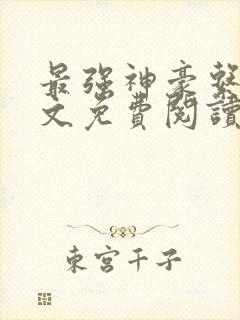 最强神豪繫
文免費閱讀
東宮千子